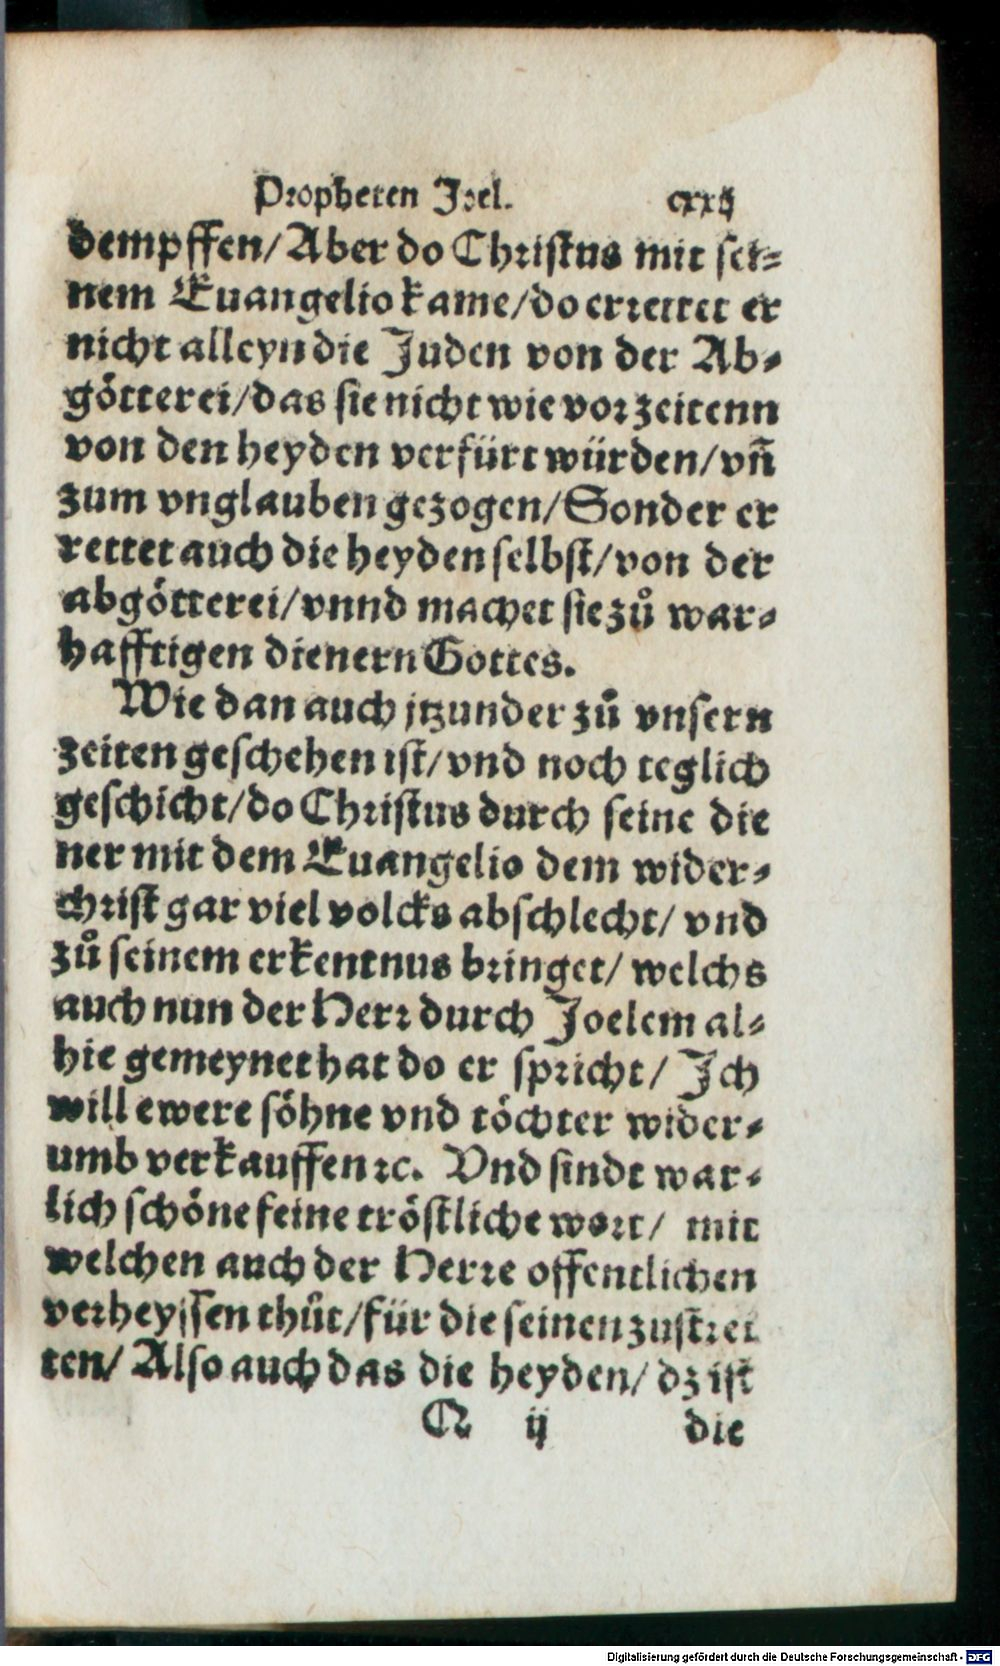 Propheten Joel. cxxij
dempffen/ Aber do Christus mit sei⸗
nem Euangelio kame/ do errettet er
nicht alleyn die Juden von der Ab⸗
götterei/ das sie nicht wie vor zeitenn
von den heyden verfürt würden/ vñ
zum vnglauben gezogen/ Sonder er
rettet auch die heyden selbst/ von der
abgötterei/ vnnd machet sie zů war⸗
hafftigen dienern Gottes.
Wie dan auch jtzunder zů vnsern
zeiten geschehen ist/ vnd noch teglich
geschicht/ do Christus durch seine die
ner mit dem Euangelio dem wider⸗
christ gar viel volcks abschlecht/ vnd
zů seinem erkentnus bringet/ welchs
auch nun der Herr durch Joelem al⸗
hie gemeynet hat do er spricht/ Jch
will ewere söhne vnd töchter wider⸗
umb verkauffen ꝛc. Vnd sindt war⸗
lich schöne feine tröstliche wort/ mit
welchen auch der Herre offentlichen
verheyssen thůt/ für die seinen zustrei
ten/ Also auch das die heyden/ dz ist
Q ij die
Digitalisierung gefördert durch die Deutsche Forschungsgemeinschaft - DFG